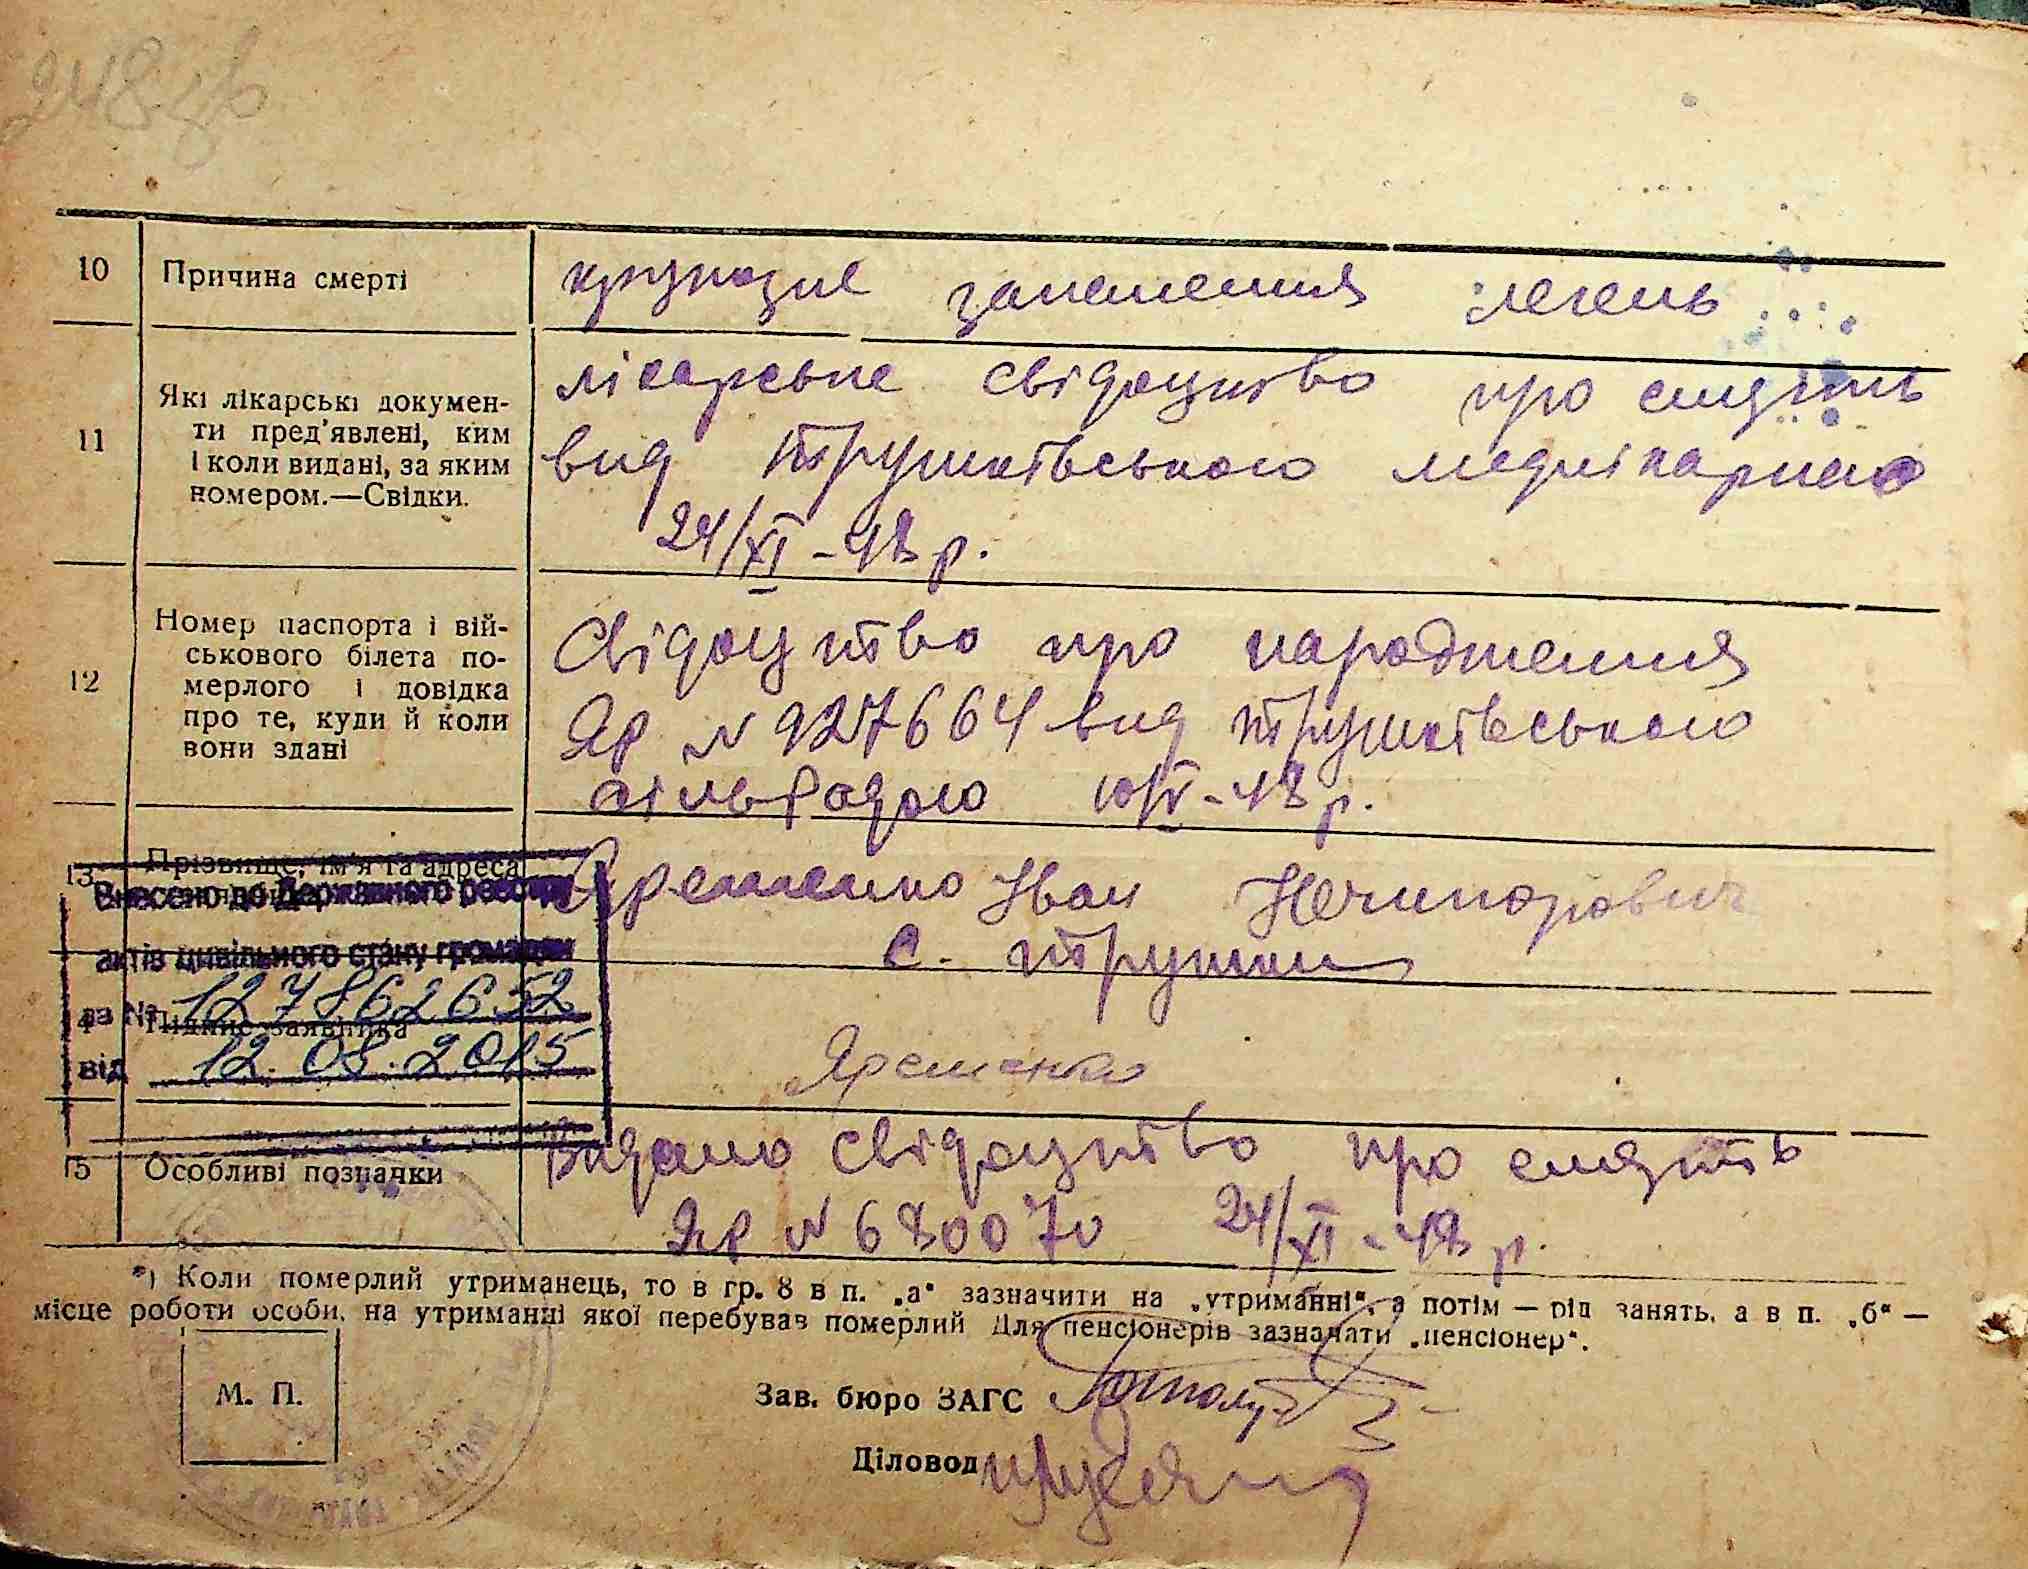 10 Причина смерті крупозне запалення легень
11 Які лікарські докумен-
ти пред'явлені, ким
і коли видані, за яким
номером.—Свідки.
лікарське свідоцтво про смерть
вид Трушківською медлікарнею
24/XI - 48 р.
12 Номер паспорта і вій-
ськового білета по-
мерлого і довідка
про те, куди й коли
вони здані
Свідоцтво про народження
ЯР № 927664 вид Трушківською
сільрадою 10/IV - 48 р.
13 Прізвище, ім'я та адреса
Яременко Іван Нечипорович
с. Трушки
Внесено до Державного реєстру
актів цивільного стану громадян
за № 1278626 52
від 12.08.2015
14 Підпис заявника
Яременко
15 Особливі позначки
Видано свідоцтво про смерть
ЯР № 680070 24/XI - 48 р.
*) Коли померлий утриманець, то в гр. 8 в п. „а“ зазначити на „утриманні“, а потім — рід занять, а в п. „б“ —
місце роботи особи, на утриманні якої перебував померлий Для пенсіонерів зазначати „пенсіонер“.
М. П.
Зав. бюро ЗАГС
Діловод